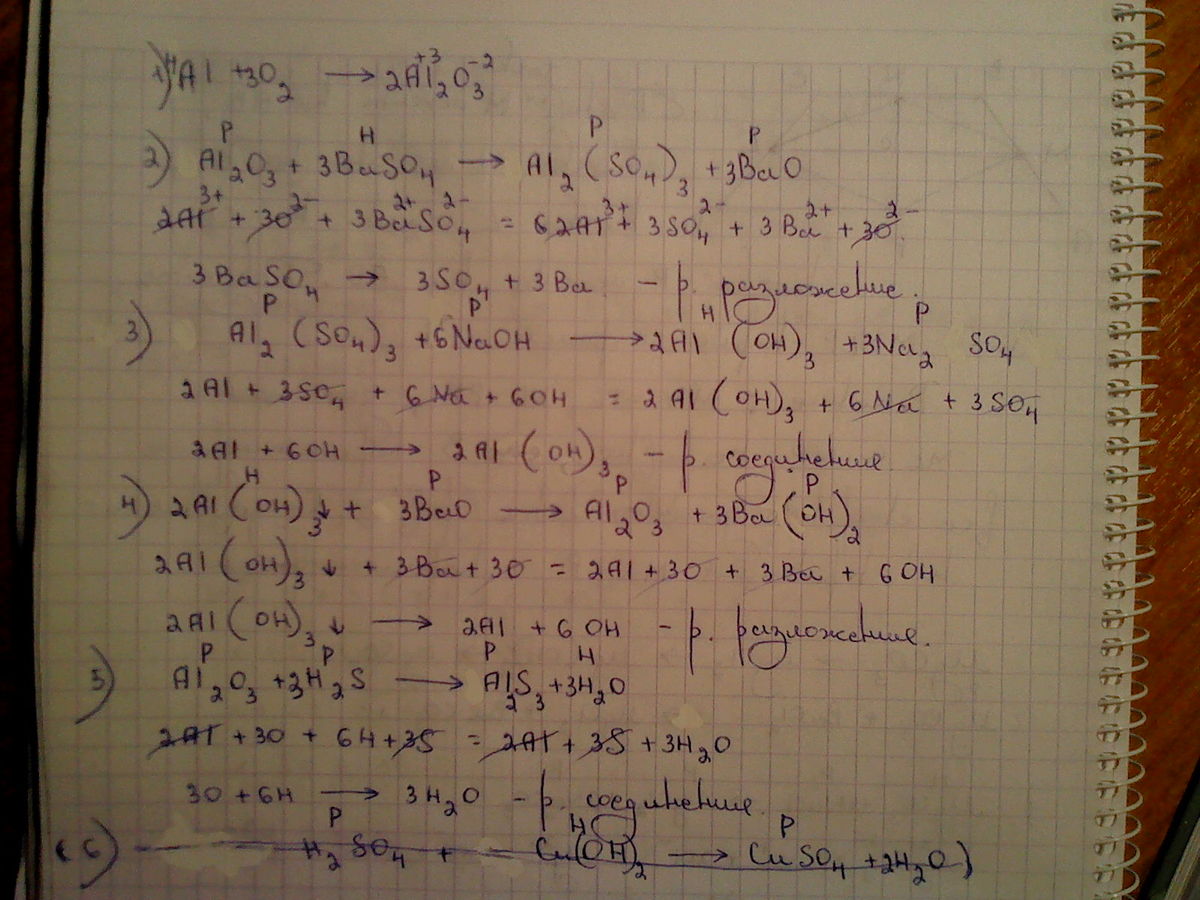 1) 4Al + 3O₂ → 2Al₂⁺³O₃⁻²
Р Н Р Р
2) Al₂O₃ + 3BaSO₄ → Al₂(SO₄)₃ + 3BaO
2Al³⁺ + 3O²⁻ + 3Ba²⁺SO₄²⁻ = 6 2Al³⁺ + 3SO₄²⁻ + 3Ba²⁺ + 3O²⁻.
3BaSO₄ → 3SO₄ + 3Ba – р. разложение.
Р Р Н Р
3) Al₂(SO₄)₃ + 6NaOH → 2Al(OH)₃ + 3Na₂SO₄
2Al + 3SO₄ + 6Na + 6OH = 2Al(OH)₃ + 6Na + 3SO₄
2Al + 6OH → 2Al(OH)₃ – р. соединение
Н Р Р Р
4) 2Al(OH)₃↓ + 3BaO → Al₂O₃ + 3Ba(OH)₂
2Al(OH)₃↓ + 3Ba + 3O = 2Al + 3O + 3Ba + 6OH
2Al(OH)₃↓ → 2Al + 6OH – р. разложение.
Р Р Р Н
5) Al₂O₃ + 3H₂S → Al₂S₃ + 3H₂O
2Al + 3O + 6H + 3S = 2Al + 3S + 3H₂O
3O + 6H → 3H₂O – р. соединение
Р Н Р
(6) H₂SO₄ + Cu(OH)₂ → CuSO₄ + 2H₂O)